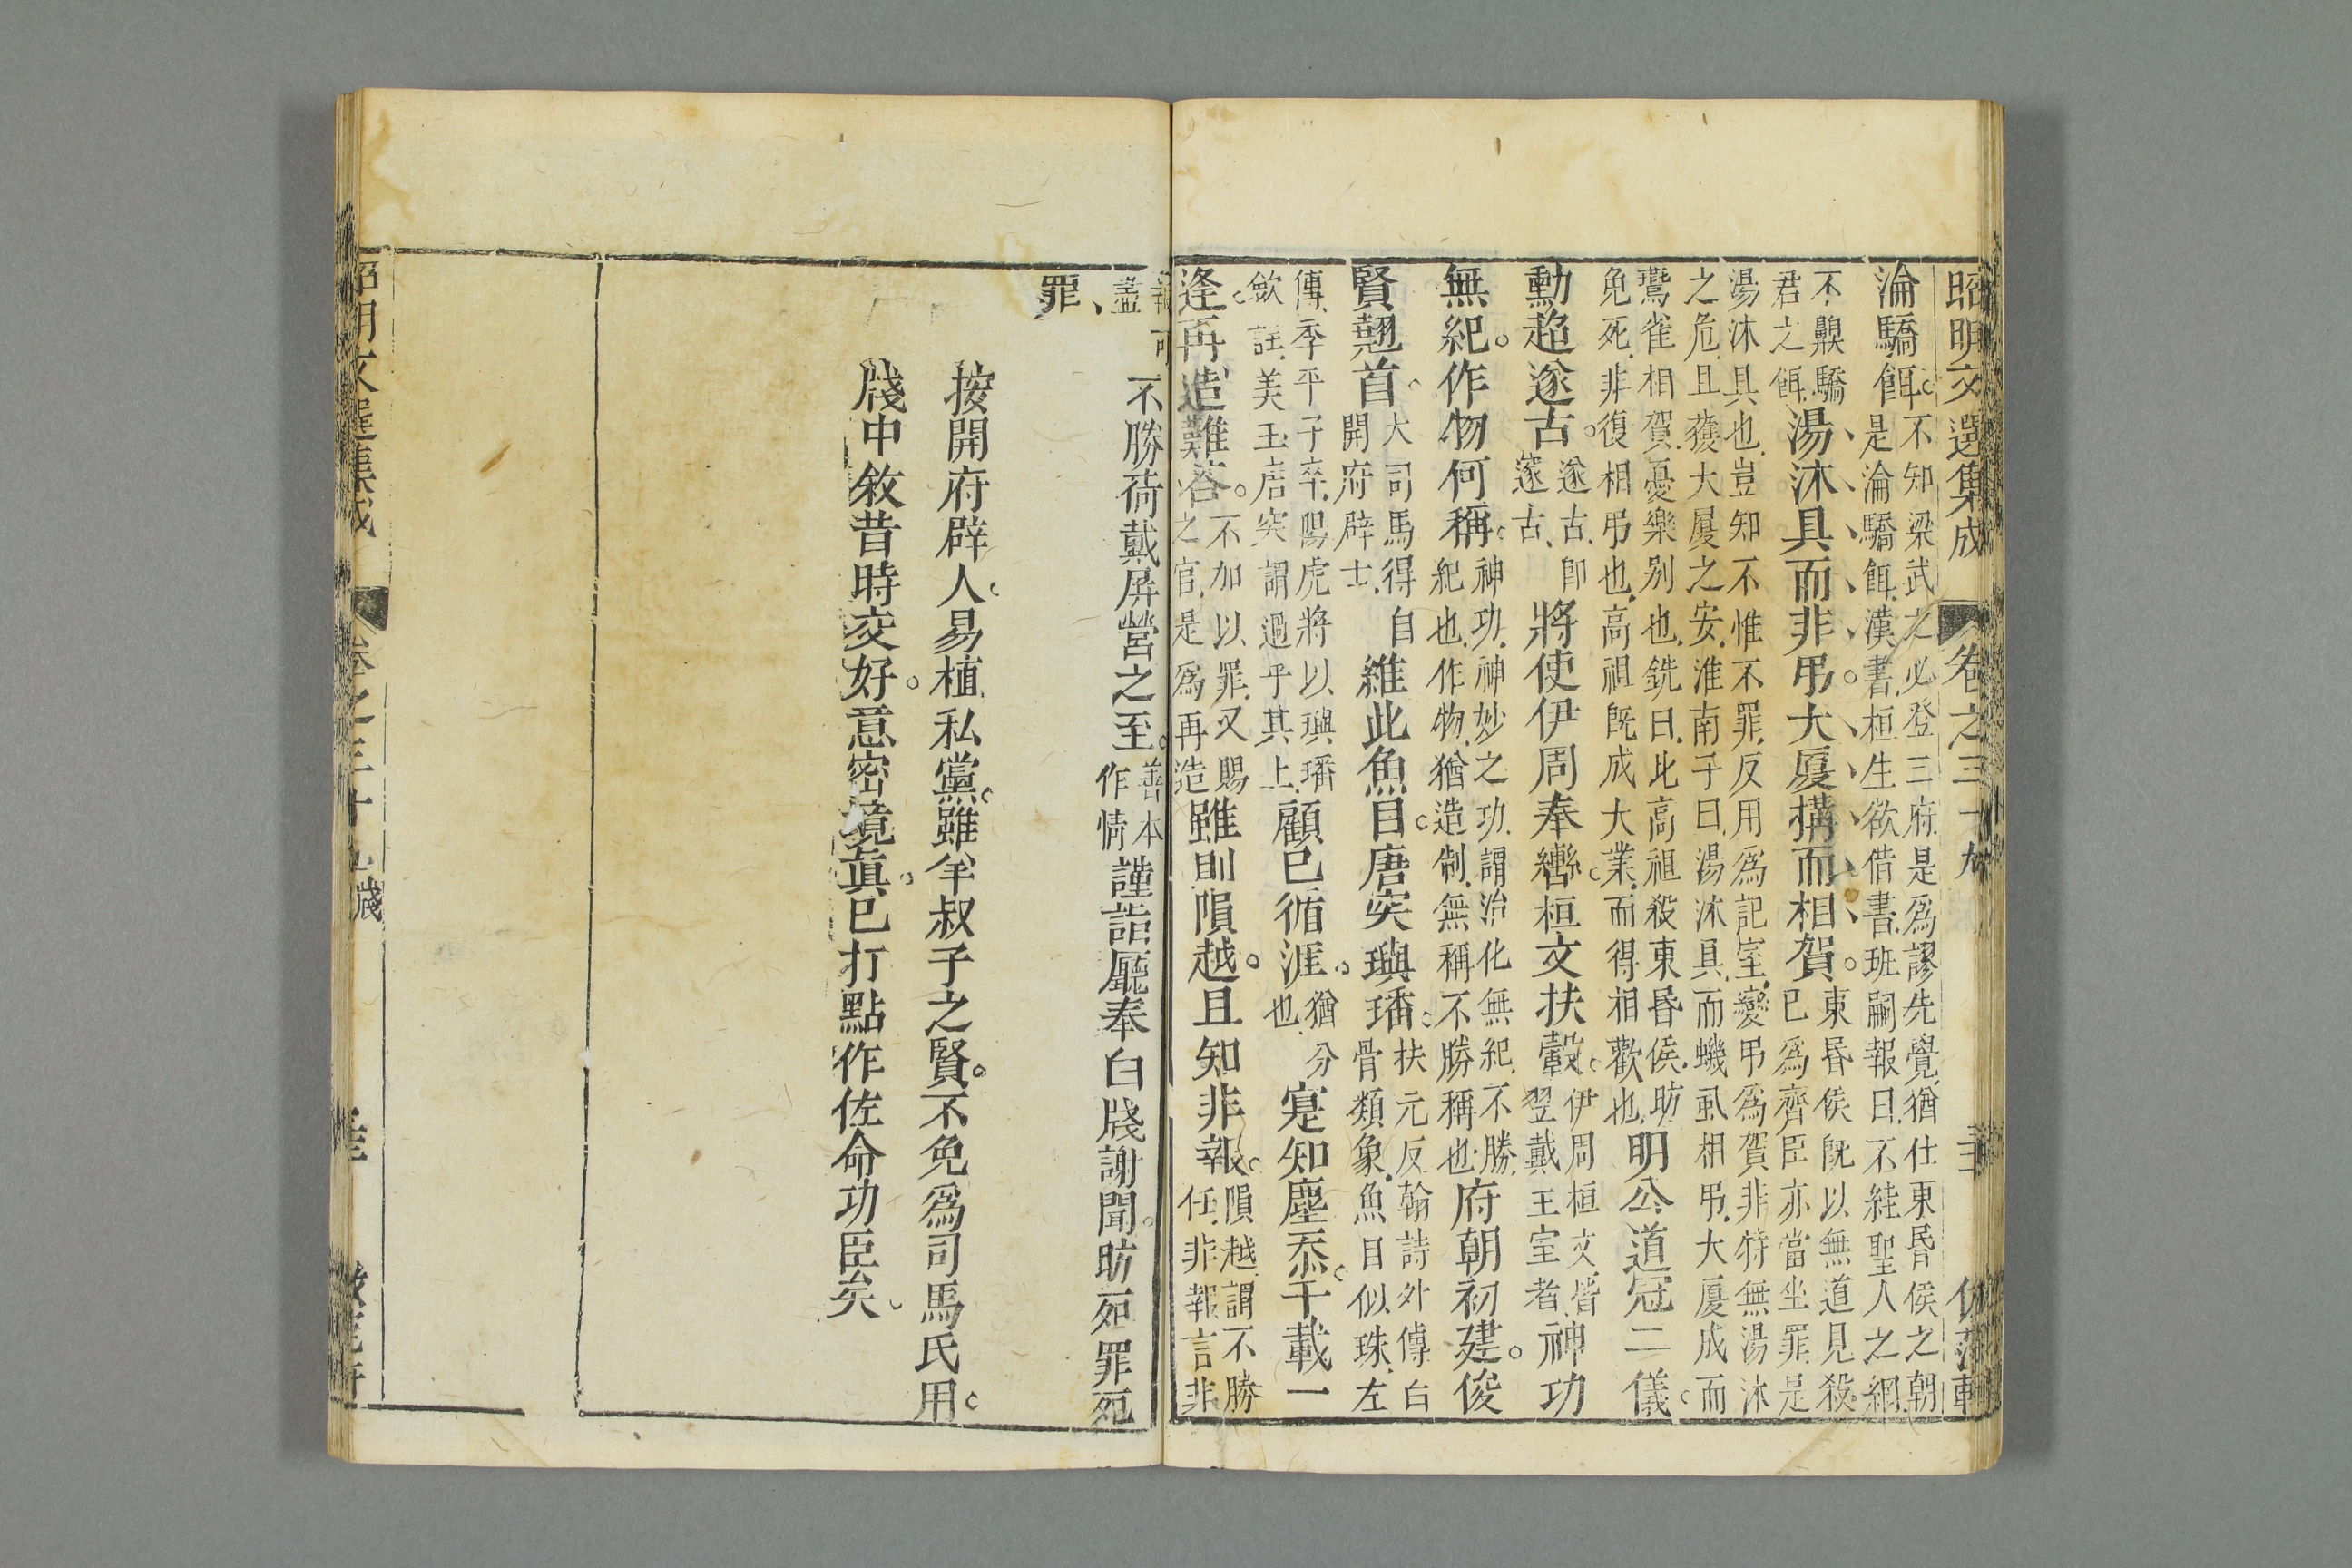 昭明文選集成 卷之三十九
淪驕餌不知梁武之必登三府是爲謬先覺猶仕東昏侯之朝是淪驕餌漢書桓生欲借書班嗣報曰不絓聖人之網
不齅驕君之餌湯沐具而非弔大廈構而相賀東昏侯旣以無道見殺已爲齊臣亦當坐罪是
湯沐具也豈知不惟不罪反用爲記室變弔爲賀非特無湯沐之危且獲大廈之安淮南子曰湯沐具而蟣虱相弔大廈成而
鷰雀相賀憂樂別也銑曰此高祖殺東昏侯昉免死非復相弔也高祖旣成大業而得相歡也明公道冠二儀
勳超遂古遂古卽邃古將使伊周奉轡桓文扶轂伊周桓文皆翌戴王室者神功
無紀作物何稱神功神妙之功謂治化無紀不勝紀也作物猶造制無稱不勝稱也府朝初建俊
賢翹首大司馬得自開府辟士維此魚目唐突璵璠扶元反翰詩外傳白骨類象魚目似珠左
傳季平子卒陽虎將以璵璠斂註美玉唐突謂過乎其上顧已循涯猶分也寔知塵忝千載一
逢再造難答不加以罪又賜之官是爲再造雖則隕越且知非報隕越謂不勝任非報言非
報可盡不勝荷戴屏營之至善本作情謹詣廳奉白牋謝聞昉死罪死
罪
按開府辟人易植私黨雖羊叔子之賢不免爲司馬氏用
牋中敘昔時交好意密境眞已打點作佐命功臣矣
昭明文選集成 卷之三十九牋